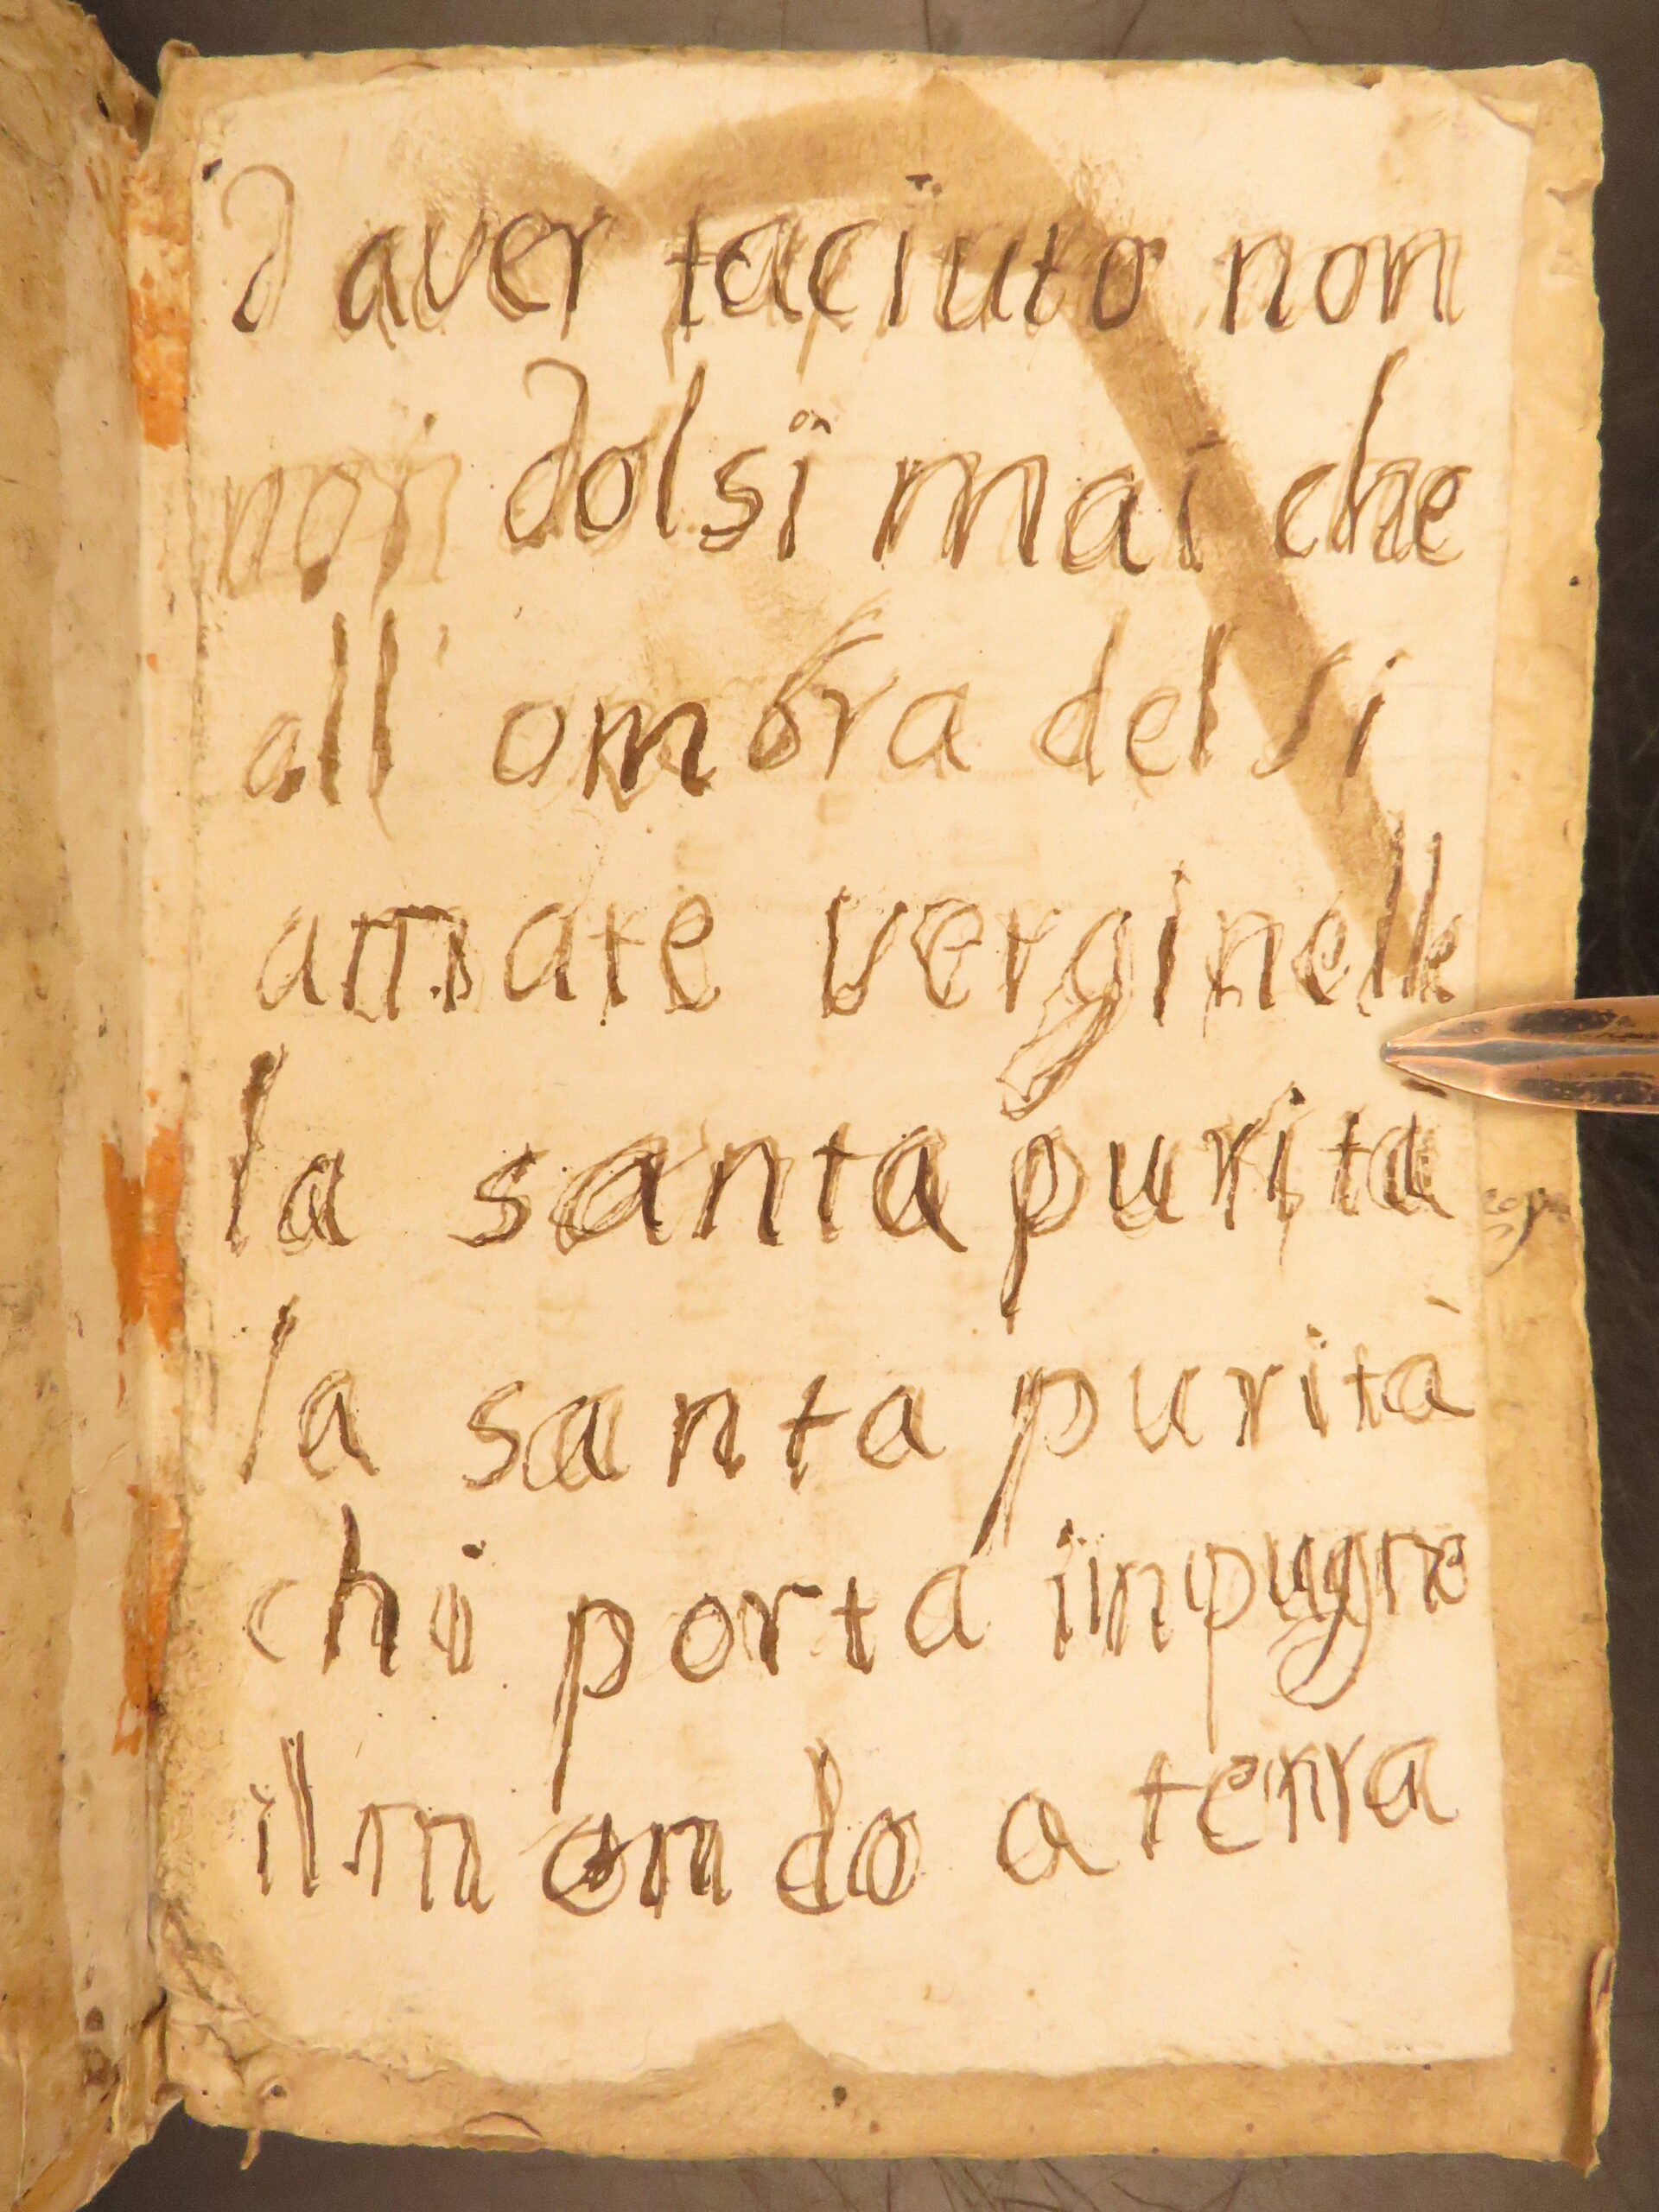 d aver taciuto non
non dolsi mai che
all' ombra del si
amate verginelle
la santa purita
la santa purità
chi porta inpugno
il mondo a terra